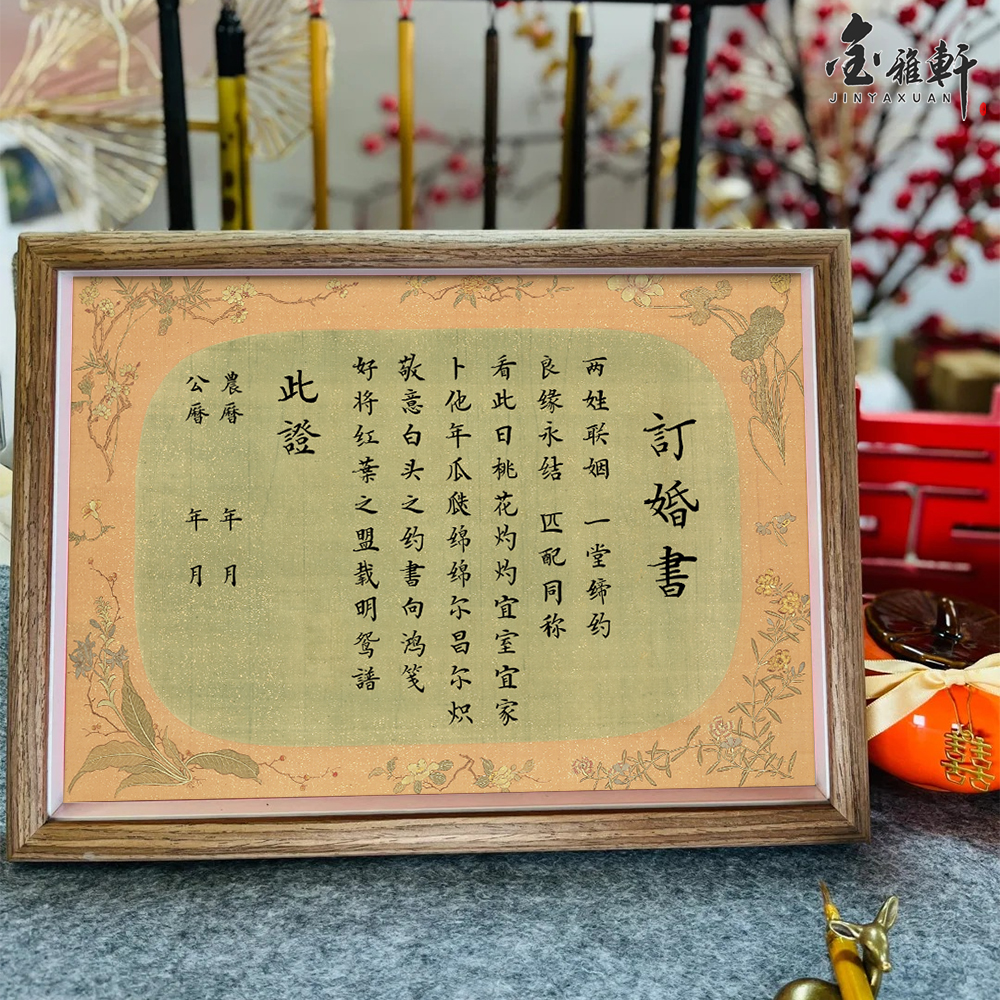 訂婚書
两姓联姻 一堂缔约
良缘永结 匹配同称
看此日桃花灼灼宜室宜家
卜他年瓜瓞绵绵尔昌尔炽
敬意白头之约書向鸿笺
好将红葉之盟载明鸳譜
此證
農曆 年 月
公曆 年 月
金雅軒
JINYAXUAN
囍